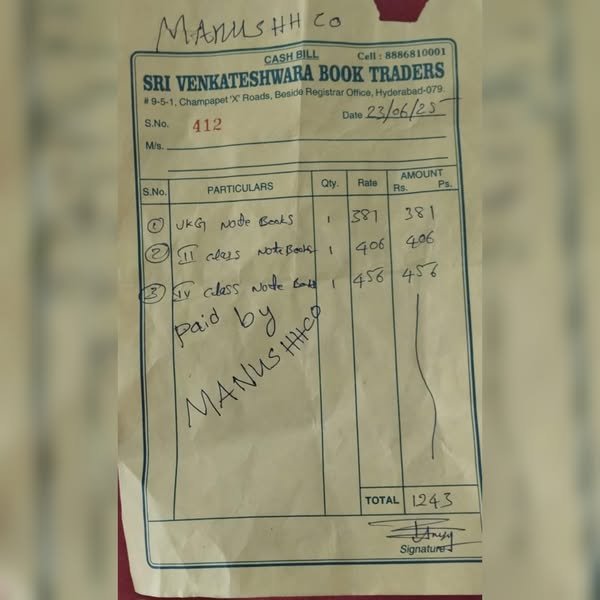 MANUSHH CO
CASH BILL Cell : 8886810001
SRI VENKATESHWARA BOOK TRADERS
# 9-5-1, Champapet 'X' Roads, Beside Registrar Office, Hyderabad-079.
S.No. 412 Date 23/06/25
M/s.
S.No. PARTICULARS Qty. Rate AMOUNT Rs. Ps.
1 UKG Note Books 1 381 381
2 II class Note Books 1 406 406
3 IV class Note Books 1 456 456
Paid by
MANUSHHCO
TOTAL 1243
Signature